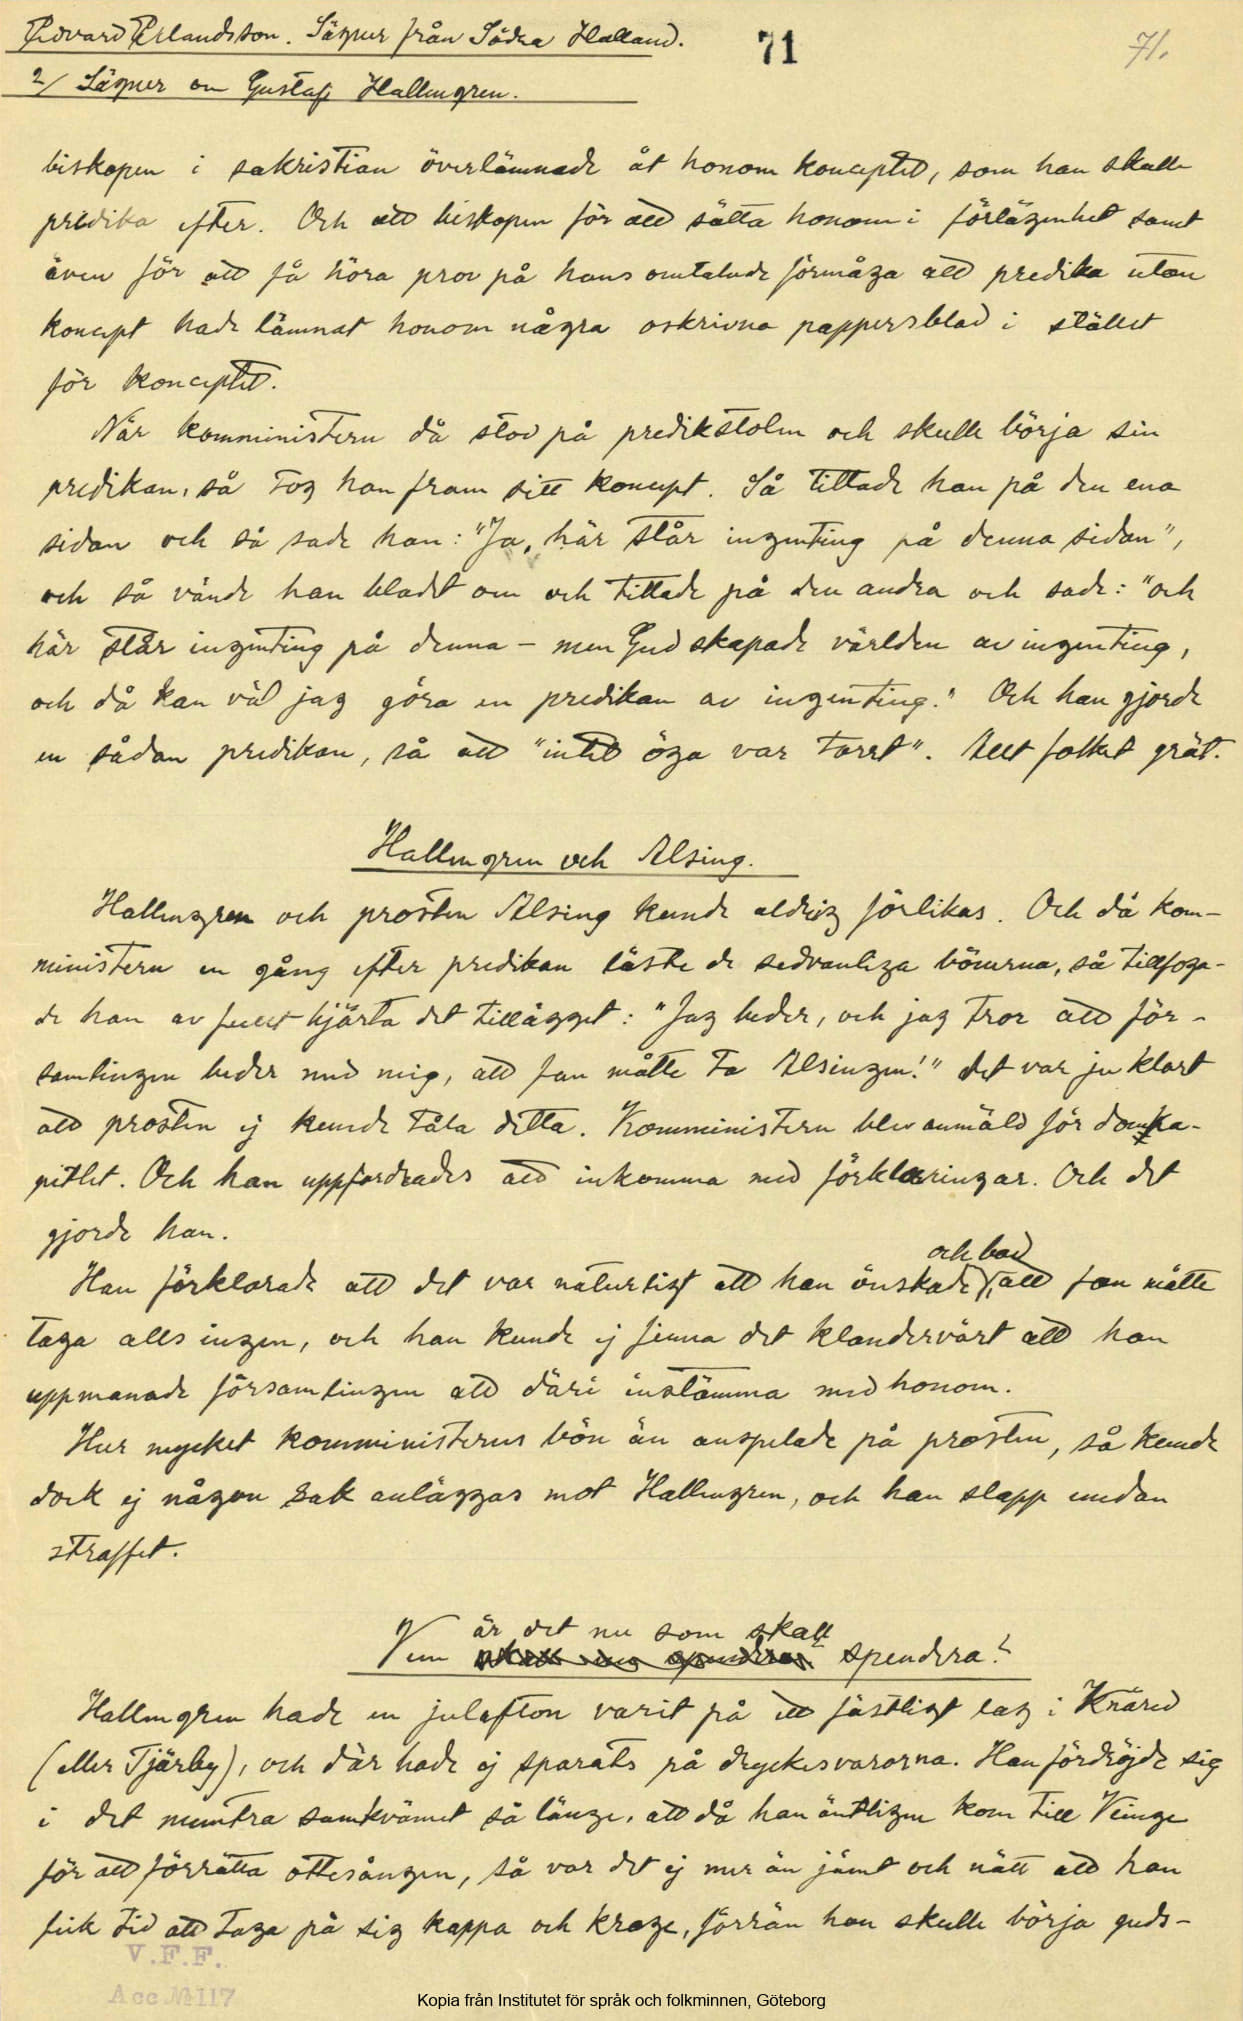 Edvard Erlandsson. Sägner från Södra Halland.
71
71.
2/ Sägner om Gustaf Hallengren.
biskopen i sakristian överlämnade åt honom konceptet, som han skulle
predika efter. Och att biskopen för att sätta honom i förlägenhet samt
även för att få höra prov på hans omtalade förmåga att predika utan
koncept hade lämnat honom några oskrivna pappersblad i stället
för konceptet.
När komministern då stod på predikstolen och skulle börja sin
predikan, så tog han fram sitt koncept. Så tittade han på den ena
sidan och så sade han: "Ja, här står ingenting på denna sidan",
och så vände han bladet om och tittade på den andra och sade: "och
här står ingenting på denna – men Gud skapade världen av ingenting,
och då kan väl jag göra en predikan av ingenting." Och han gjorde
en sådan predikan, så att "intet öga var torrt". Allt folket grät.
Hallengren och Alsing.
Hallengren och prosten Alsing kunde aldrig förlikas. Och då kom-
ministern en gång efter predikan läste de sedvanliga bönerna, så tillfoga-
de han av fullt hjärta det tillägget: "Jag beder, och jag tror att för-
samlingen beder med mig, att fan måtte ta Alsingen!" det var ju klart
att prosten ej kunde tåla detta. Komministern blev anmäld för domka-
pitlet. Och han uppfordrades att inkomma med förklaringar. Och det
gjorde han.
Han förklarade att det var naturligt att han önskade och bad, att fan måtte
taga alls ingen, och han kunde ej finna det klandervärt att han
uppmanade församlingen att däri instämma med honom.
Hur mycket komministerns bön än anspelade på prosten, så kunde
dock ej någon sak anläggas mot Hallengren, och han slapp undan
straffet.
Vem är det nu som skall spendera?
Hallengren hade en julafton varit på ett festligt lag i Knäred
(eller Tjärby), och där hade ej sparats på dryckesvarorna. Han fördröjde sig
i det muntra samkvämet så länge, att då han äntligen kom till Veinge
för att förrätta ottesången, så var det ej mer än jämt och nätt att han
fick tid att taga på sig kappa och krage, förrän han skulle börja guds-
V.F.F.
Acc № 117
Kopia från Institutet för språk och folkminnen, Göteborg